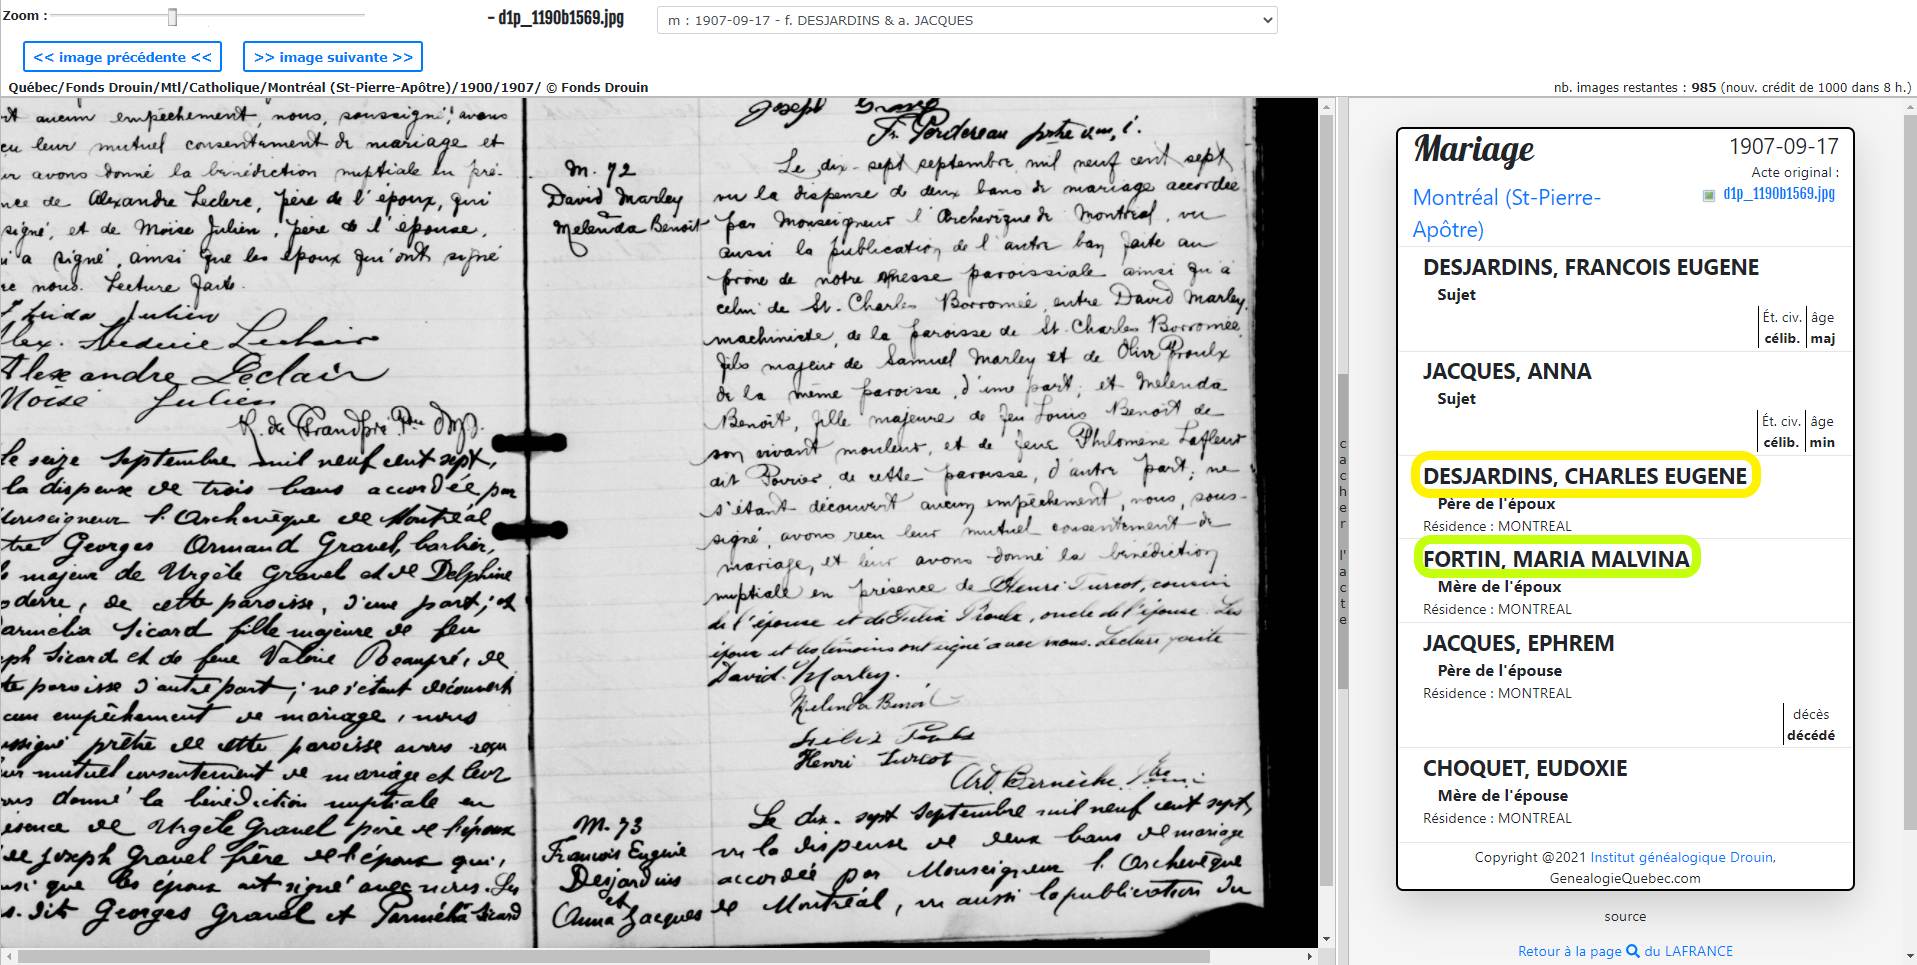 Zoom :
- d1p_1190b1569.jpg
m : 1907-09-17 - f. DESJARDINS & a. JACQUES
<< image précédente <<
>> image suivante >>
Québec/Fonds Drouin/Mtl/Catholique/Montréal (St-Pierre-Apôtre)/1900/1907/ © Fonds Drouin
nb. images restantes : 985 (nouv. crédit de 1000 dans 8 h.)
aucun empêchement, nous, soussigné, avons
leur mutuel consentement de mariage et
avons donné la bénédiction nuptiale en pré-
nce de Alexandre Leclerc, père de l'époux, qui
signé, et de Moïse Julien, père de l'épouse,
a signé, ainsi que les époux qui ont signé
nous. Lecture faite.
Julien
Alexandre Leclair
Moise Julien
le seize Septembre mil neuf cent sept,
la dispense de trois bans accordée par
Monseigneur l'Archevêque de Montréal
tre Georges Armand Gravel, barbier,
majeur de Urgèle Gravel et de Delphine
de cette paroisse, d'une part; et
Sicard fille majeure de feu
ph Sicard et de feue Valérie Beaupré, de
te paroisse d'autre part; ne s'étant découvert
cun empêchement de mariage, nous
ussigné prêtre de cette paroisse avons reçu
ur mutuel consentement de mariage et leur
ons donné la bénédiction nuptiale en
ésence de Urgèle Gravel père de l'époux
de Joseph Gravel frère de l'époux qui,
nsi que les époux ont signé avec nous. Les
s. dits Georges Gravel et Sicard
Joseph Gravel
M. 72
David Marley
&
Melenda Benoit
Le dix-sept septembre mil neuf cent sept
vu la dispense de deux bans de mariage accordée
par Monseigneur l'Archevêque de Montréal, vu
aussi la publication de l'autre ban faite au
prône de notre messe paroissiale ainsi qu'à
celui de St. Charles Borromée, entre David Marley,
machiniste, de la paroisse de St. Charles Borromée
fils majeur de Samuel Marley et de Olive Proulx
de la même paroisse, d'une part; et Melenda
Benoit, fille majeure de feu Louis Benoit de
son vivant mouleur, et de feue Philomène Lafleur
dit Poirier, de cette paroisse, d'autre part; ne
s'étant découvert aucun empêchement, nous, sous-
signé, avons reçu leur mutuel consentement de
mariage, et leur avons donné la bénédiction
nuptiale en présence de Henri Turcot, cousin
de l'épouse et de Proulx, oncle de l'épouse. Les
époux et les témoins ont signé avec nous. Lecture faite
David Marley.
Melinda Benoit
Henri Turcot
M. 73
François Eugène
Desjardins
et
Anna Jacques
Le dix-sept Septembre mil neuf cent sept,
vu la dispense de deux bans de mariage
accordée par Monseigneur l'Archevêque
de Montréal, vu aussi la publication du
cacher l'acte
Mariage
1907-09-17
Acte original :
Montréal (St-Pierre-
Apôtre)
d1p_1190b1569.jpg
DESJARDINS, FRANCOIS EUGENE
Sujet
Ét. civ. âge
célib. maj
JACQUES, ANNA
Sujet
Ét. civ. âge
célib. min
DESJARDINS, CHARLES EUGENE
Père de l'époux
Résidence : MONTREAL
FORTIN, MARIA MALVINA
Mère de l'époux
Résidence : MONTREAL
JACQUES, EPHREM
Père de l'épouse
Résidence : MONTREAL
décès
décédé
CHOQUET, EUDOXIE
Mère de l'épouse
Résidence : MONTREAL
Copyright @2021 Institut généalogique Drouin,
GenealogieQuebec.com
source
Retour à la page du LAFRANCE